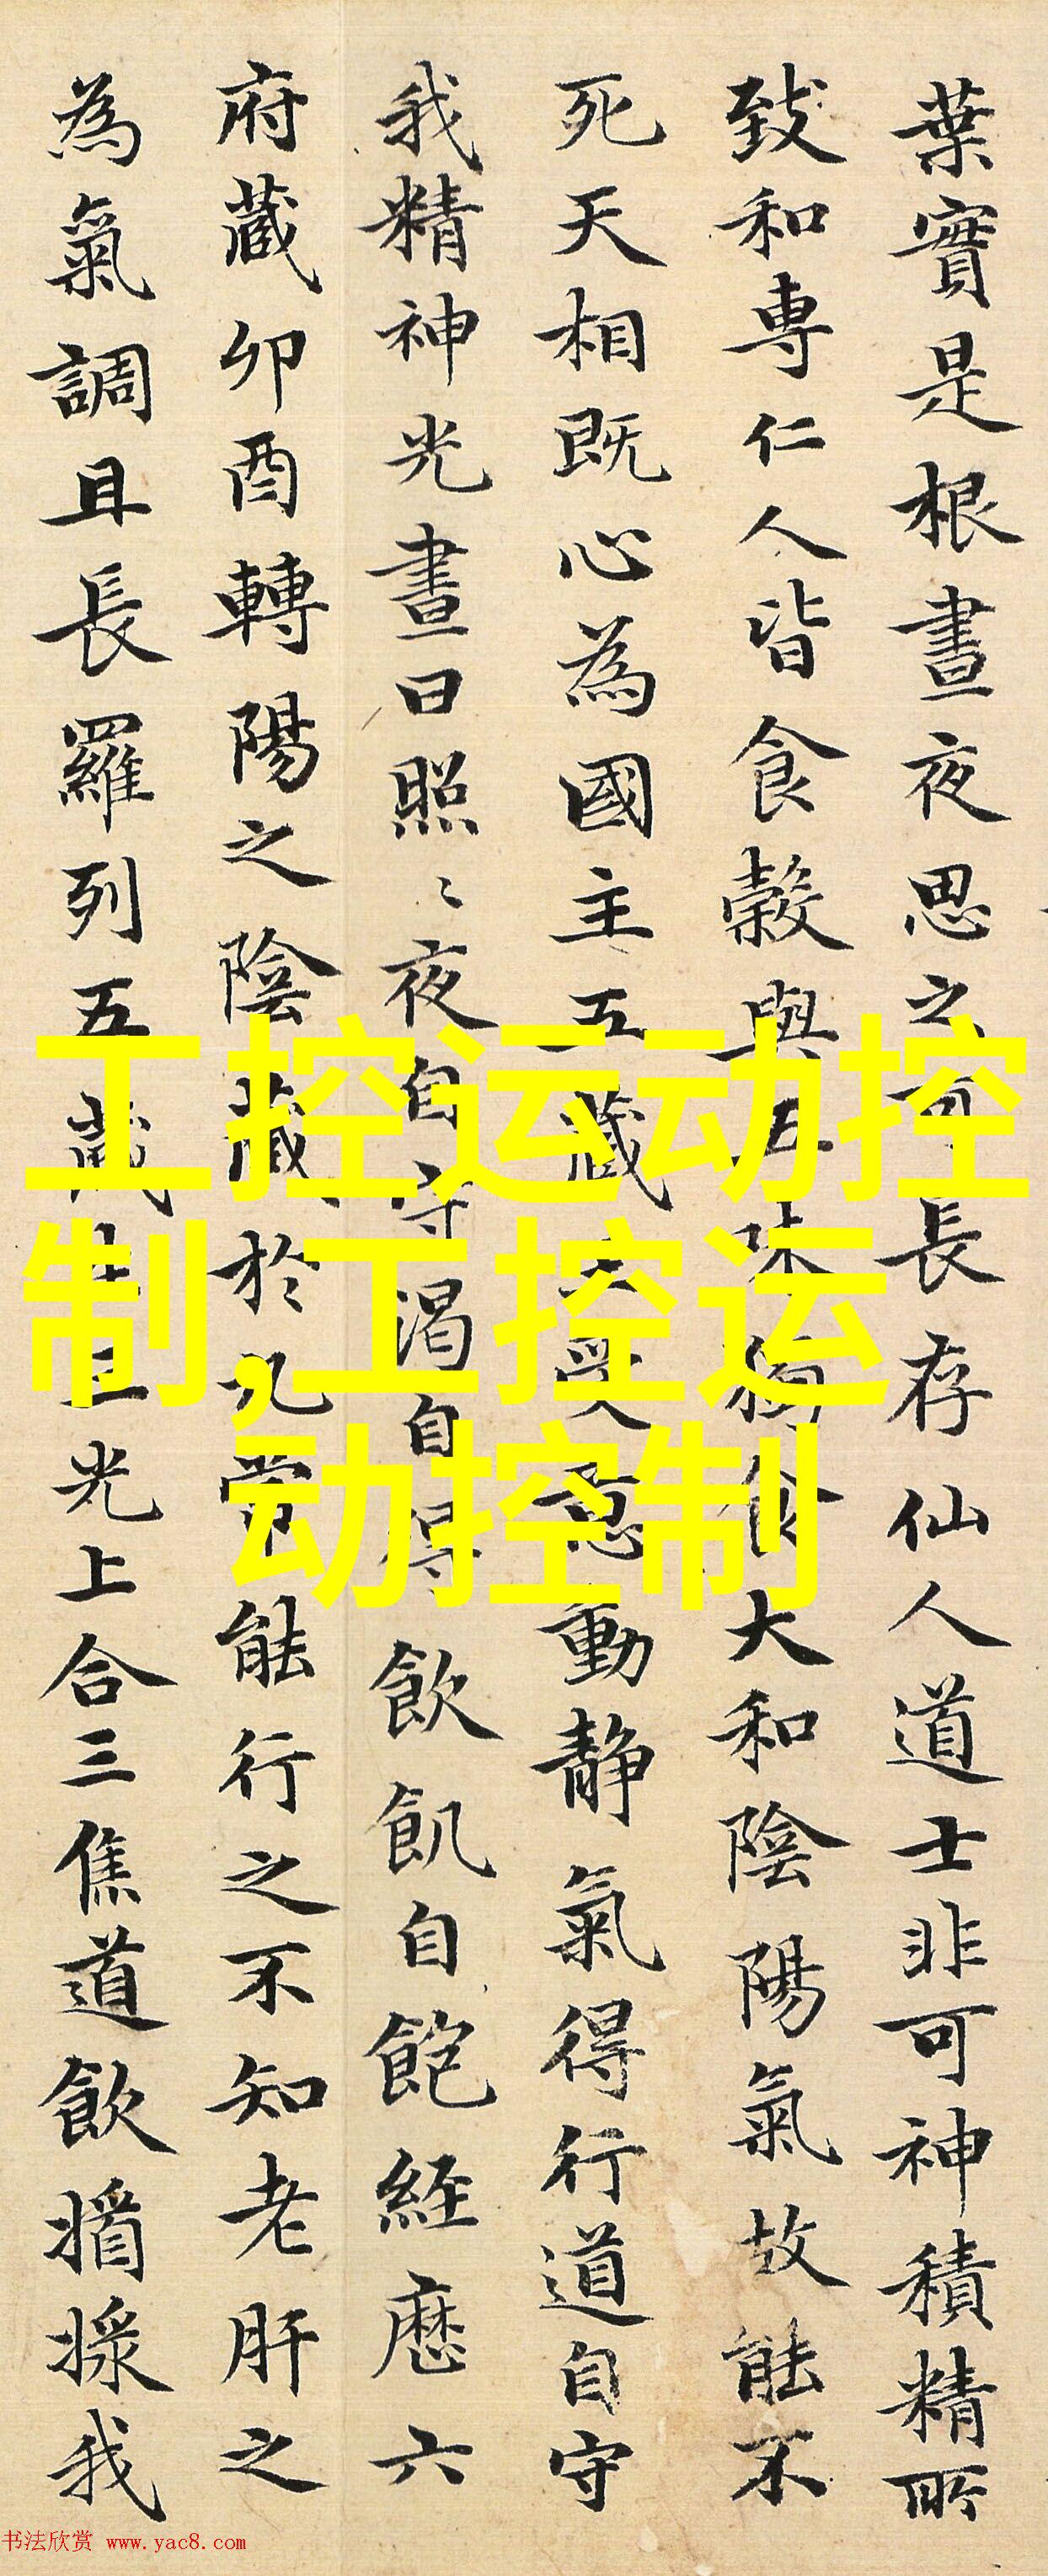 葉實是根晝夜思之可長存仙人道士非可神積精所
致和專仁人皆食穀與五味獨食大和陰陽氣故能不
死天相既心為國主五藏王受意動靜氣得行道自守
我精神光晝日照〻夜自守渴自得飲飢自飽經歷六
府藏卯酉轉陽之陰藏於九常能行之不知老肝之
為氣調且長羅列五藏生三光上合三焦道飲漿我
工控运动控
制,工控运
动控制
书法欣赏 www.yac8.com